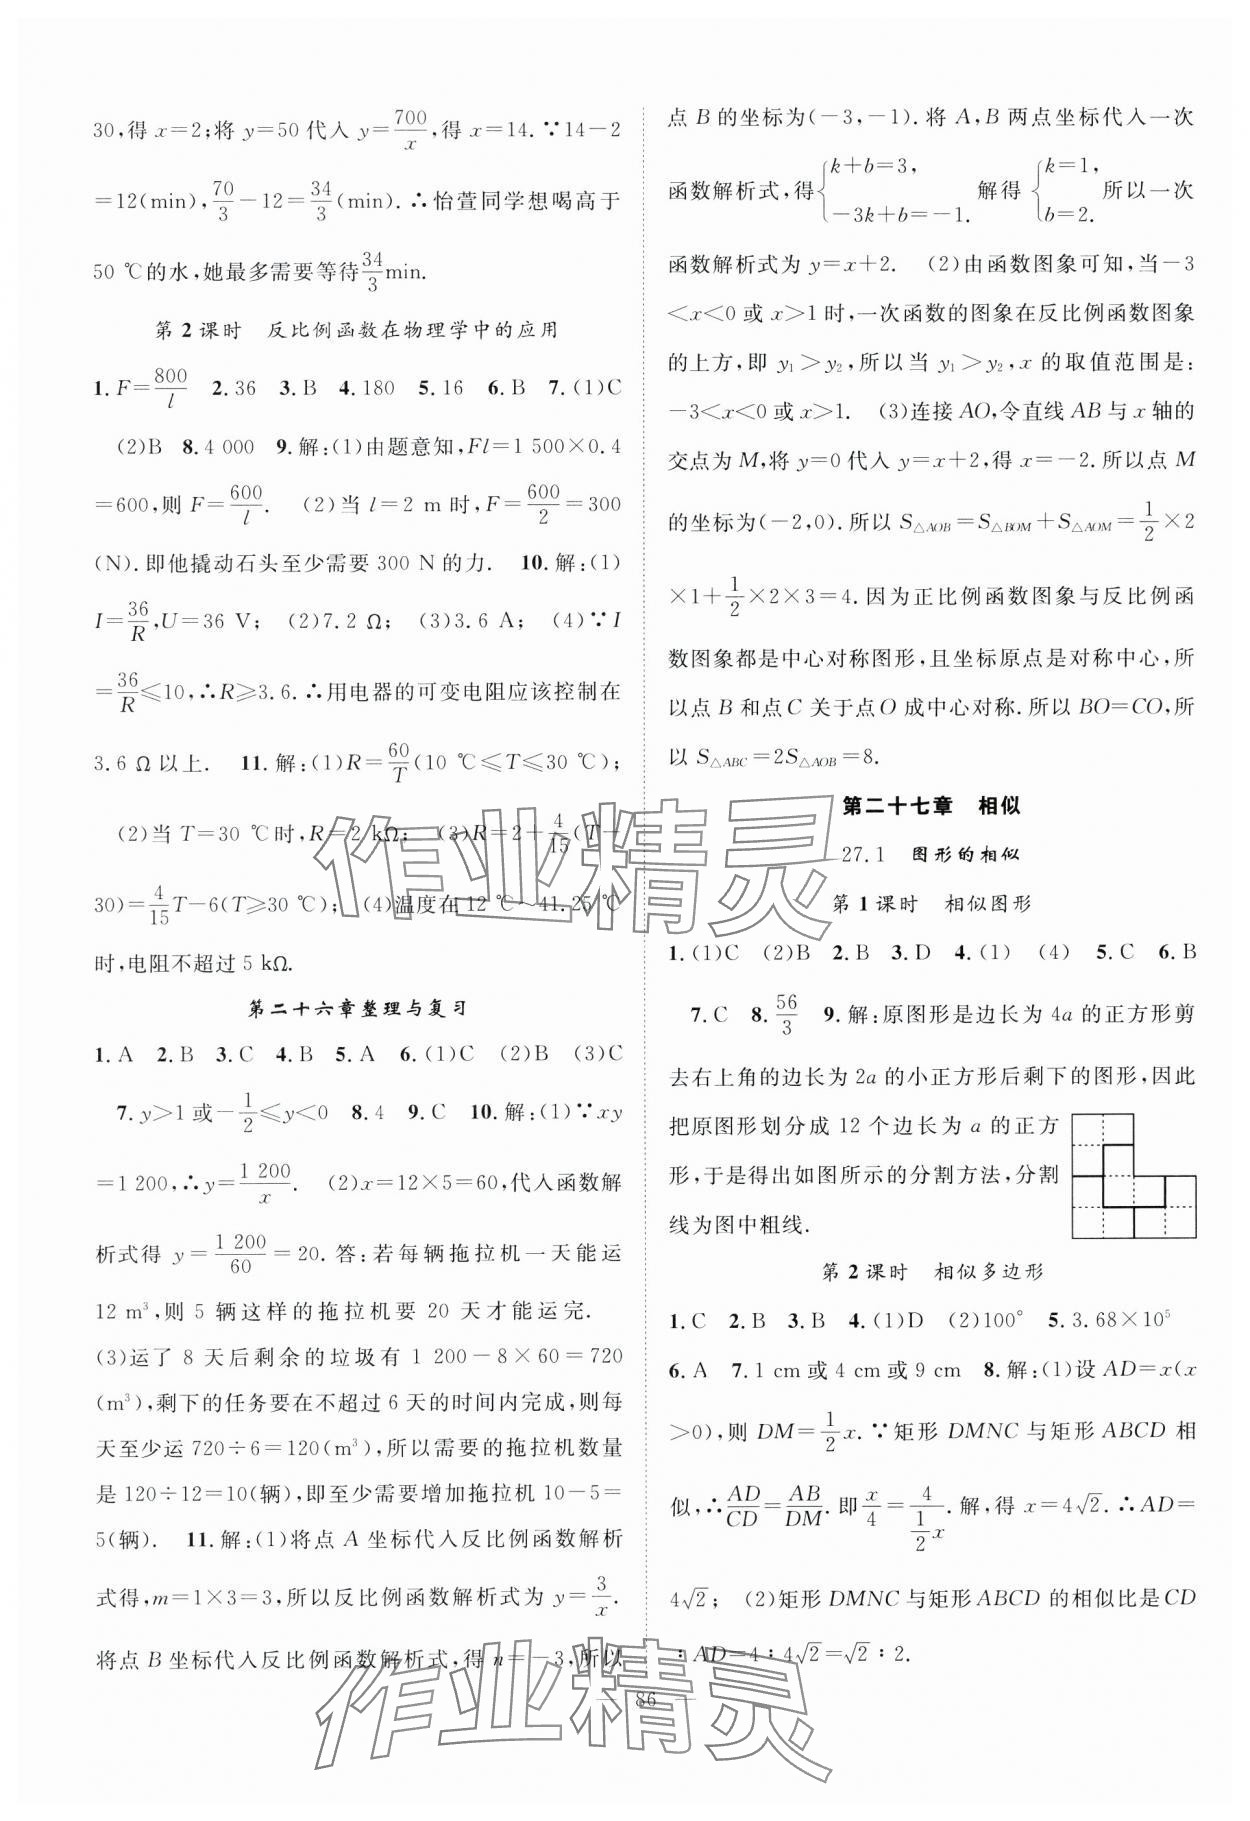 30,得 x=2;将 y=50 代入 y=700/x,得 x=14.∵14−2
=12(min),70/3−12=34/3(min).∴怡萱同学想喝高于
50 ℃的水,她最多需要等待34/3min.
第 2 课时　反比例函数在物理学中的应用
1. F=800/l　2. 36　3. B　4. 180　5. 16　6. B　7. (1)C
(2)B　8. 4 000　9. 解:(1)由题意知,Fl=1 500×0.4
=600,则 F=600/l.　(2)当 l=2 m 时,F=600/2=300
(N).即他撬动石头至少需要 300 N 的力.　10. 解:(1)
I=36/R,U=36 V;　(2)7.2 Ω;　(3)3.6 A;　(4)∵I
=36/R≤10,∴R≥3.6.∴用电器的可变电阻应该控制在
3.6 Ω 以上.　11. 解:(1)R=60/T(10 ℃≤T≤30 ℃);
(2)当 T=30 ℃时,R=2 kΩ;　(3)R=2+4/15(T−
30)=4/15T−6(T≥30 ℃);　(4)温度在 12 ℃~41.25 ℃
时,电阻不超过 5 kΩ.
第二十六章整理与复习
1. A　2. B　3. C　4. B　5. A　6. (1)C　(2)B　(3)C
7. y>1 或−1/2≤y<0　8. 4　9. C　10. 解:(1)∵xy
=1 200,∴y=1 200/x.　(2)x=12×5=60,代入函数解
析式得 y=1 200/60=20.答:若每辆拖拉机一天能运
12 m³,则 5 辆这样的拖拉机要 20 天才能运完.
(3)运了 8 天后剩余的垃圾有 1 200−8×60=720
(m³),剩下的任务要在不超过 6 天的时间内完成,则每
天至少运 720÷6=120(m³),所以需要的拖拉机数量
是 120÷12=10(辆),即至少需要增加拖拉机 10−5=
5(辆).　11. 解:(1)将点 A 坐标代入反比例函数解析
式得,m=1×3=3,所以反比例函数解析式为 y=3/x.
将点 B 坐标代入反比例函数解析式,得 n=−3,所以
点 B 的坐标为(−3,−1).将 A,B 两点坐标代入一次
函数解析式,得{k+b=3, −3k+b=−1. 解得{k=1, b=2. 所以一次
函数解析式为 y=x+2.　(2)由函数图象可知,当−3
<x<0 或 x>1 时,一次函数的图象在反比例函数图象
的上方,即 y₁>y₂,所以当 y₁>y₂,x 的取值范围是:
−3<x<0 或 x>1.　(3)连接 AO,令直线 AB 与 x 轴的
交点为 M,将 y=0 代入 y=x+2,得 x=−2.所以点 M
的坐标为(−2,0).所以 S△AOB=S△BOM+S△AOM=1/2×2
×1+1/2×2×3=4.因为正比例函数图象与反比例函
数图象都是中心对称图形,且坐标原点是对称中心,所
以点 B 和点 C 关于点 O 成中心对称.所以 BO=CO,所
以 S△ABC=2S△AOB=8.
第二十七章　相似
27.1　图形的相似
第 1 课时　相似图形
1. (1)C　(2)B　2. B　3. D　4. (1)　(4)　5. C　6. B
7. C　8. 56/3　9. 解:原图形是边长为 4a 的正方形剪
去右上角的边长为 2a 的小正方形后剩下的图形,因此
把原图形划分成 12 个边长为 a 的正方
形,于是得出如图所示的分割方法,分割
线为图中粗线.
第 2 课时　相似多边形
1. C　2. B　3. B　4. (1)D　(2)100°　5. 3.68×10⁵
6. A　7. 1 cm 或 4 cm 或 9 cm　8. 解:(1)设 AD=x(x
>0),则 DM=1/2x.∵矩形 DMNC 与矩形 ABCD 相
似,∴AD/CD=AB/DM.即x/4=4/(1/2x).解,得 x=4√2.∴AD=
4√2;　(2)矩形 DMNC 与矩形 ABCD 的相似比是 CD
∶AD=4∶4√2=√2∶2.
86
作业精灵
作业精灵